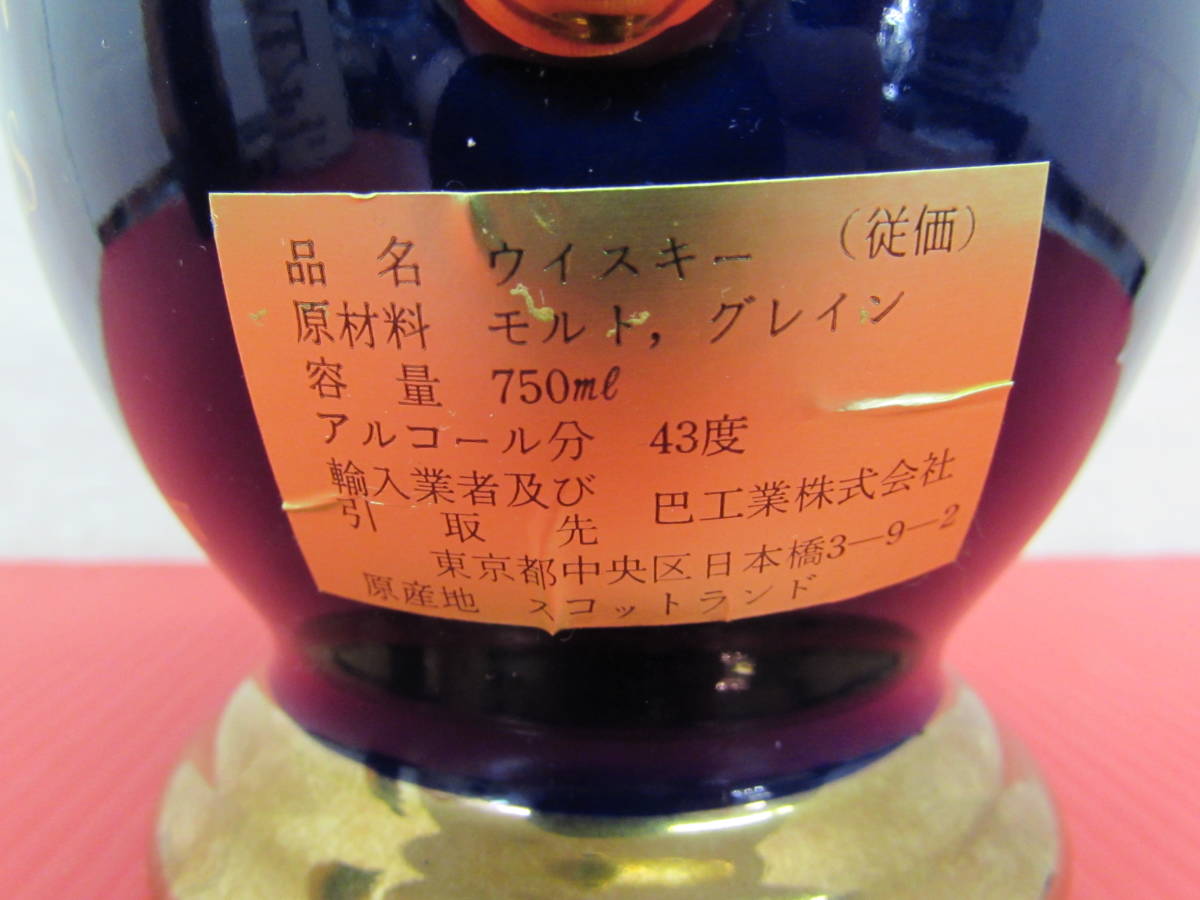 品名 ウイスキー (従価)
原材料 モルト, グレイン
容量 750ml
アルコール分 43度
輸入業者及び
引取先 巴工業株式会社
東京都中央区日本橋3-9-2
原産地 スコットランド